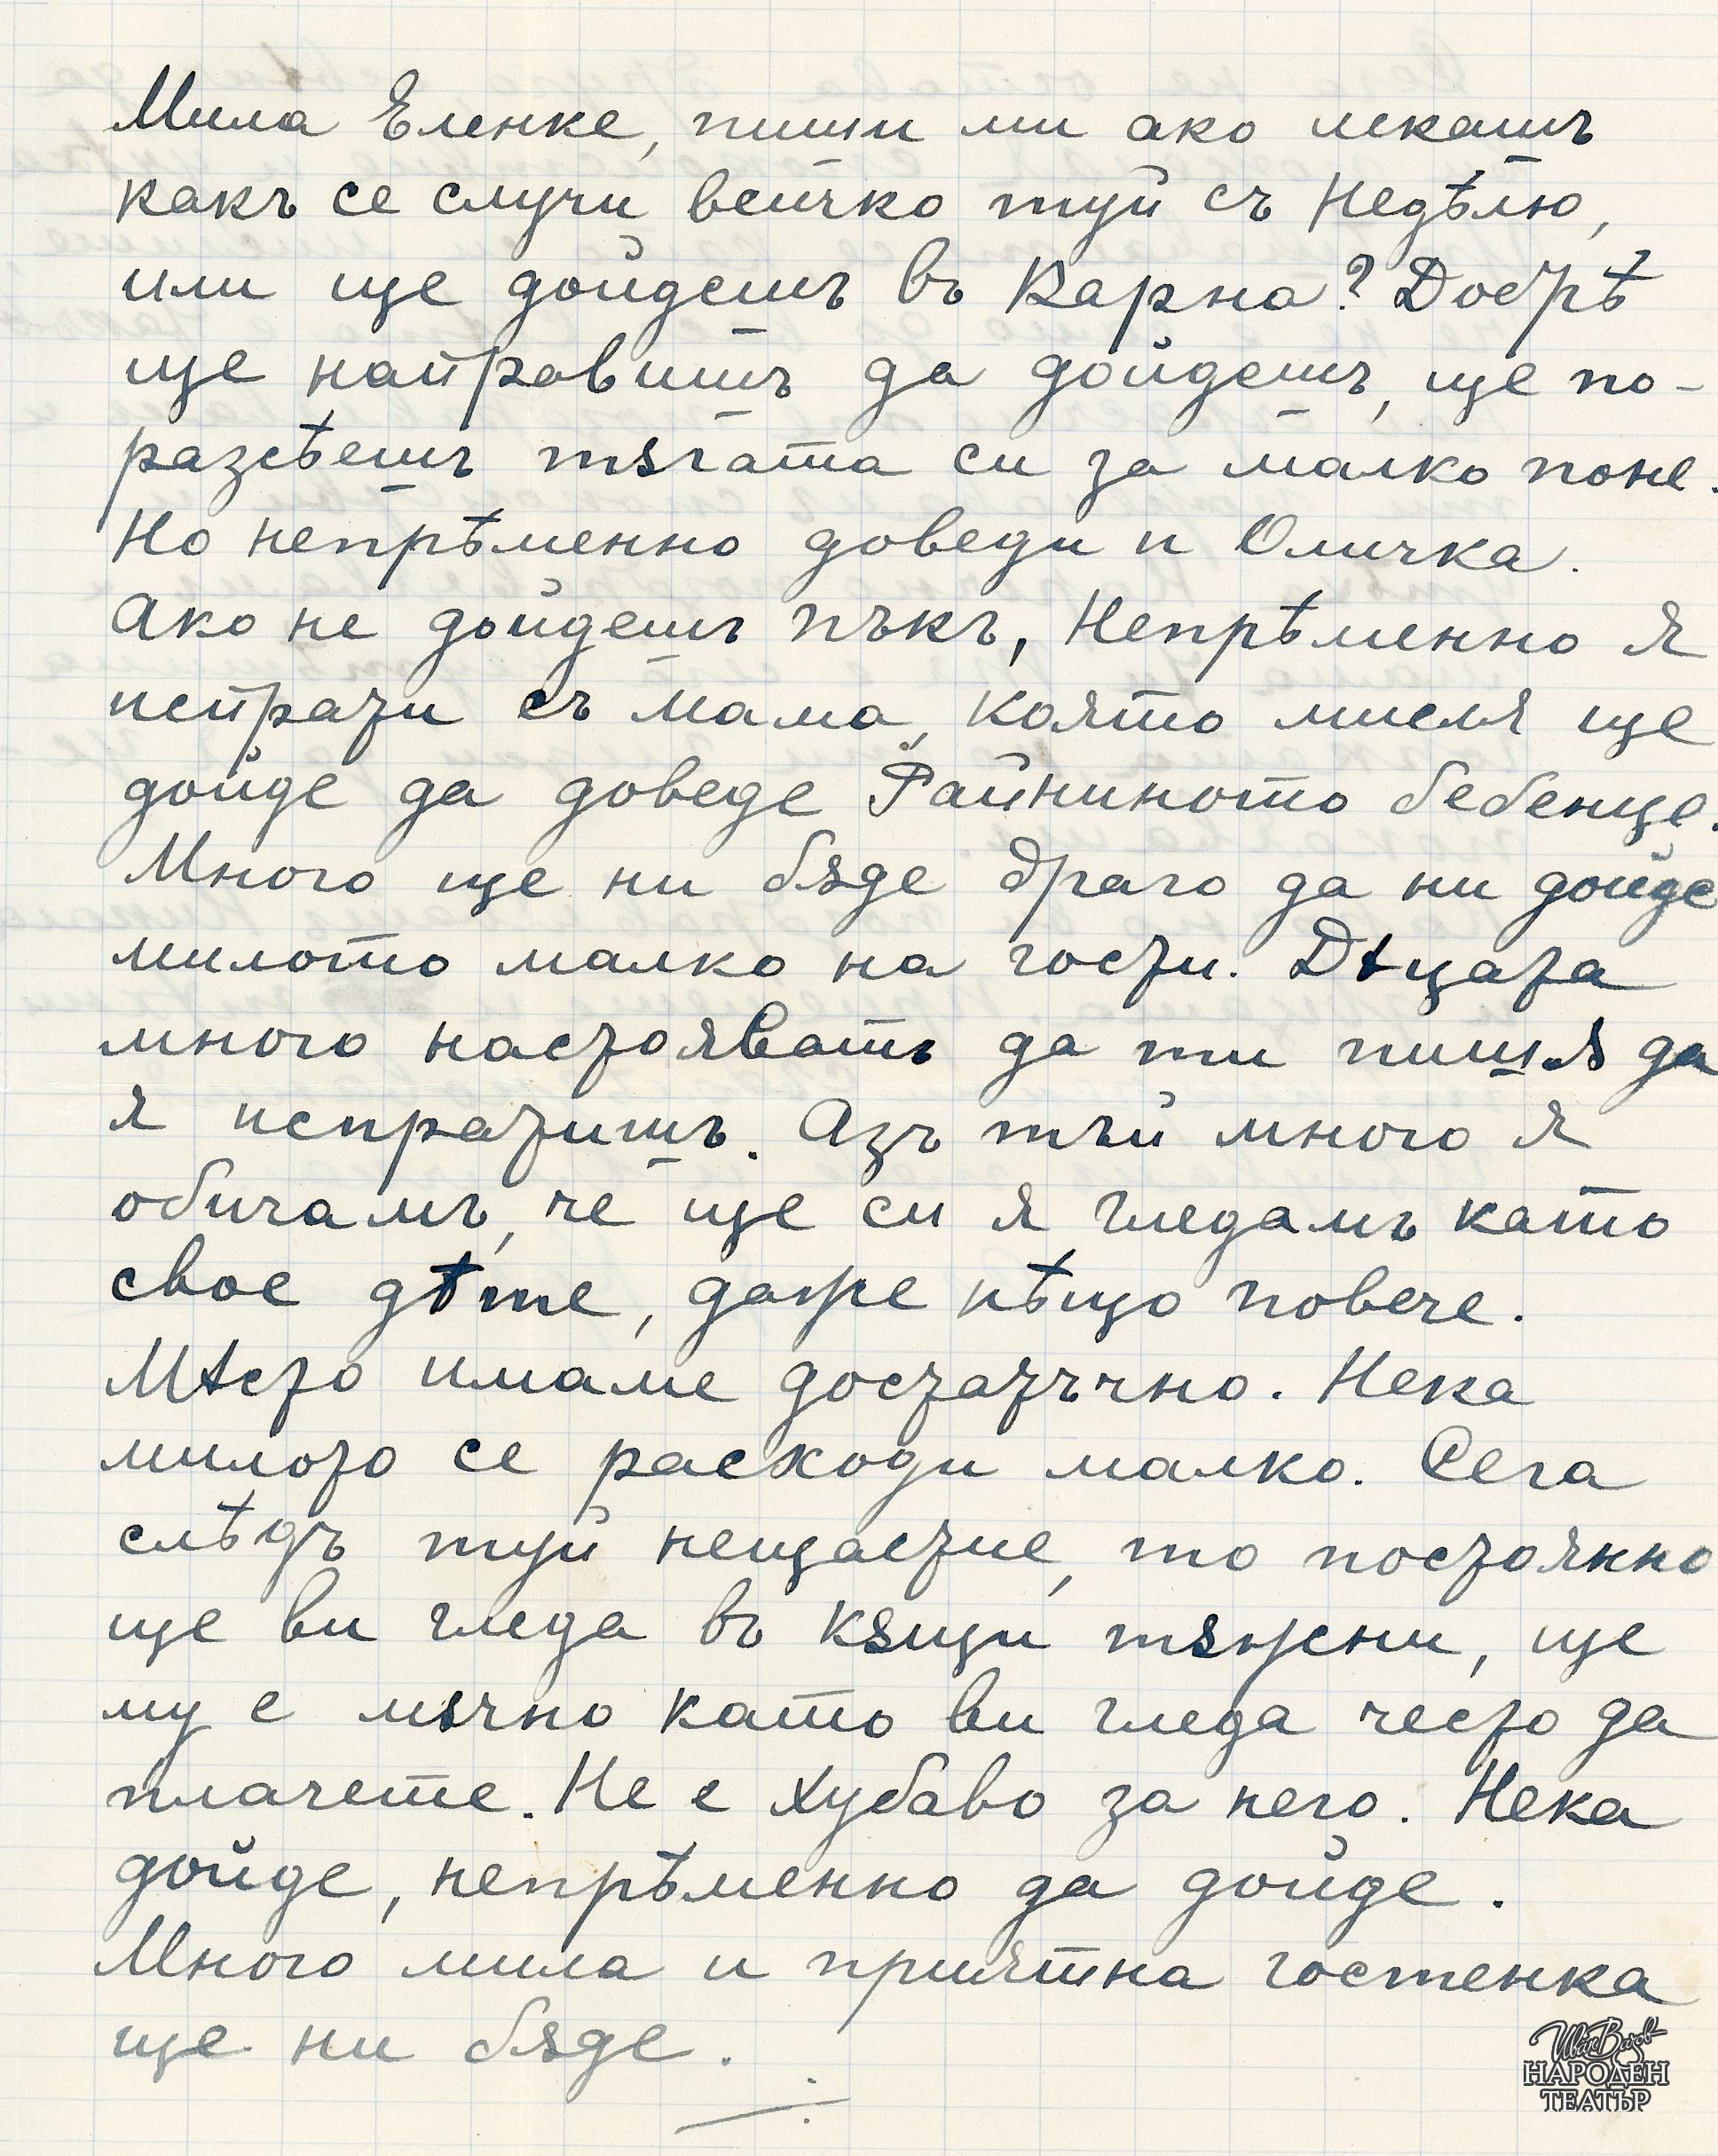 Мила Еленке, пиши ми ако искашъ
какъ се случи всичко туй съ Недѣлю,
или ще дойдешъ въ Варна? Добрѣ
ще направишъ да дойдешъ, ще по-
разсѣешъ тѫгата си за малко поне.
Но непрѣменно доведи и Оличка.
Ако не дойдешъ пъкъ, Непрѣменно я
испрати съ мама, която мисля ще
дойде да доведе Райниното бебенце.
Много ще ни бѫде драго да ни дойде
милото малко на гости. Дѣцата
много настояватъ да ти пишѫ да
я испратишъ. Азъ тъй много я
обичамъ, че ще си я гледамъ като
свое дѣте, даже нѣщо повече.
Мѣсто имаме достатъчно. Нека
милото се расходи малко. Сега
слѣдъ туй нещастие, то постоянно
ще ви гледа въ кѫщи тѫжни, ще
му е мѫчно като ви гледа често да
плачете. Не е хубаво за него. Нека
дойде, непрѣменно да дойде.
Много мила и приятна гостенка
ще ни бѫде.
Иван Вазов
НАРОДЕН
ТЕАТЪР